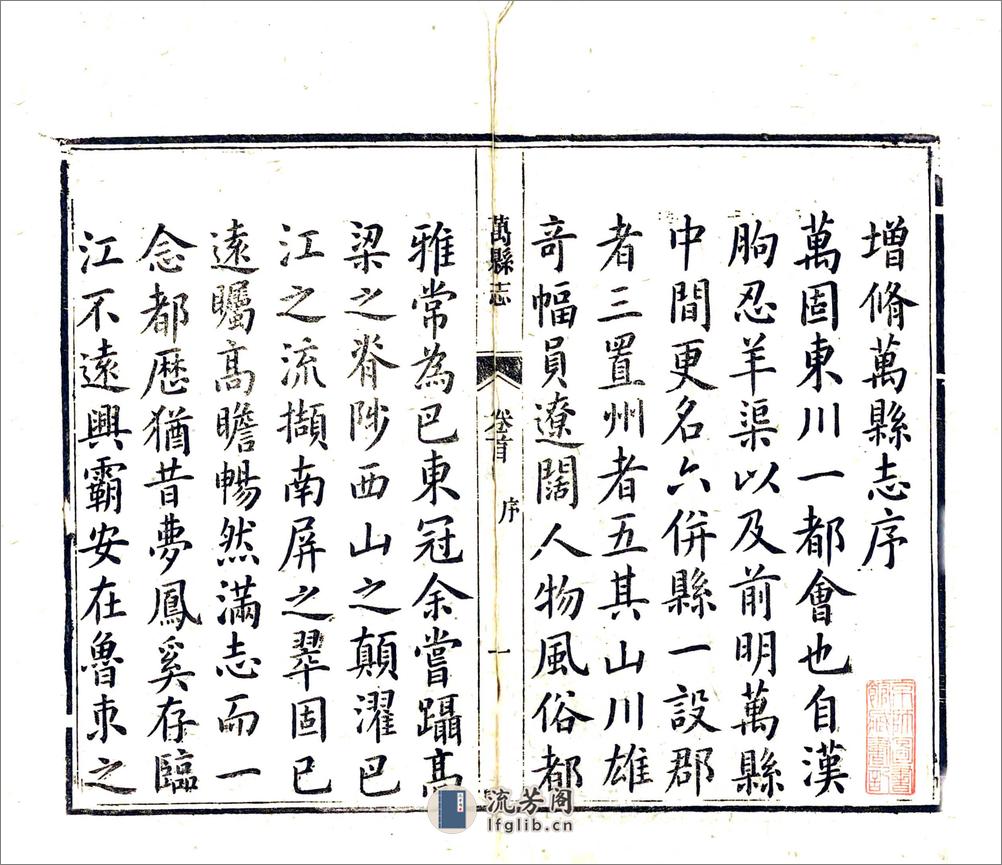 增脩萬縣志序
萬固東川一都會也自漢
朐忍羊渠以及前明萬縣
中間更名六併縣一設郡
者三置州者五其山川雄
竒幅員遼闊人物風俗都
萬縣志 卷首 序 一
雅常為巴東冠余嘗躡高
梁之脊陟西山之顛濯巴
江之流擷南屏之翠固已
遠矚高瞻暢然滿志而一
念都厯猶昔夢鳳奚存臨
江不遠興霸安在魯朿之
京師圖書
館藏書記
流芳阁
lfglib.cn